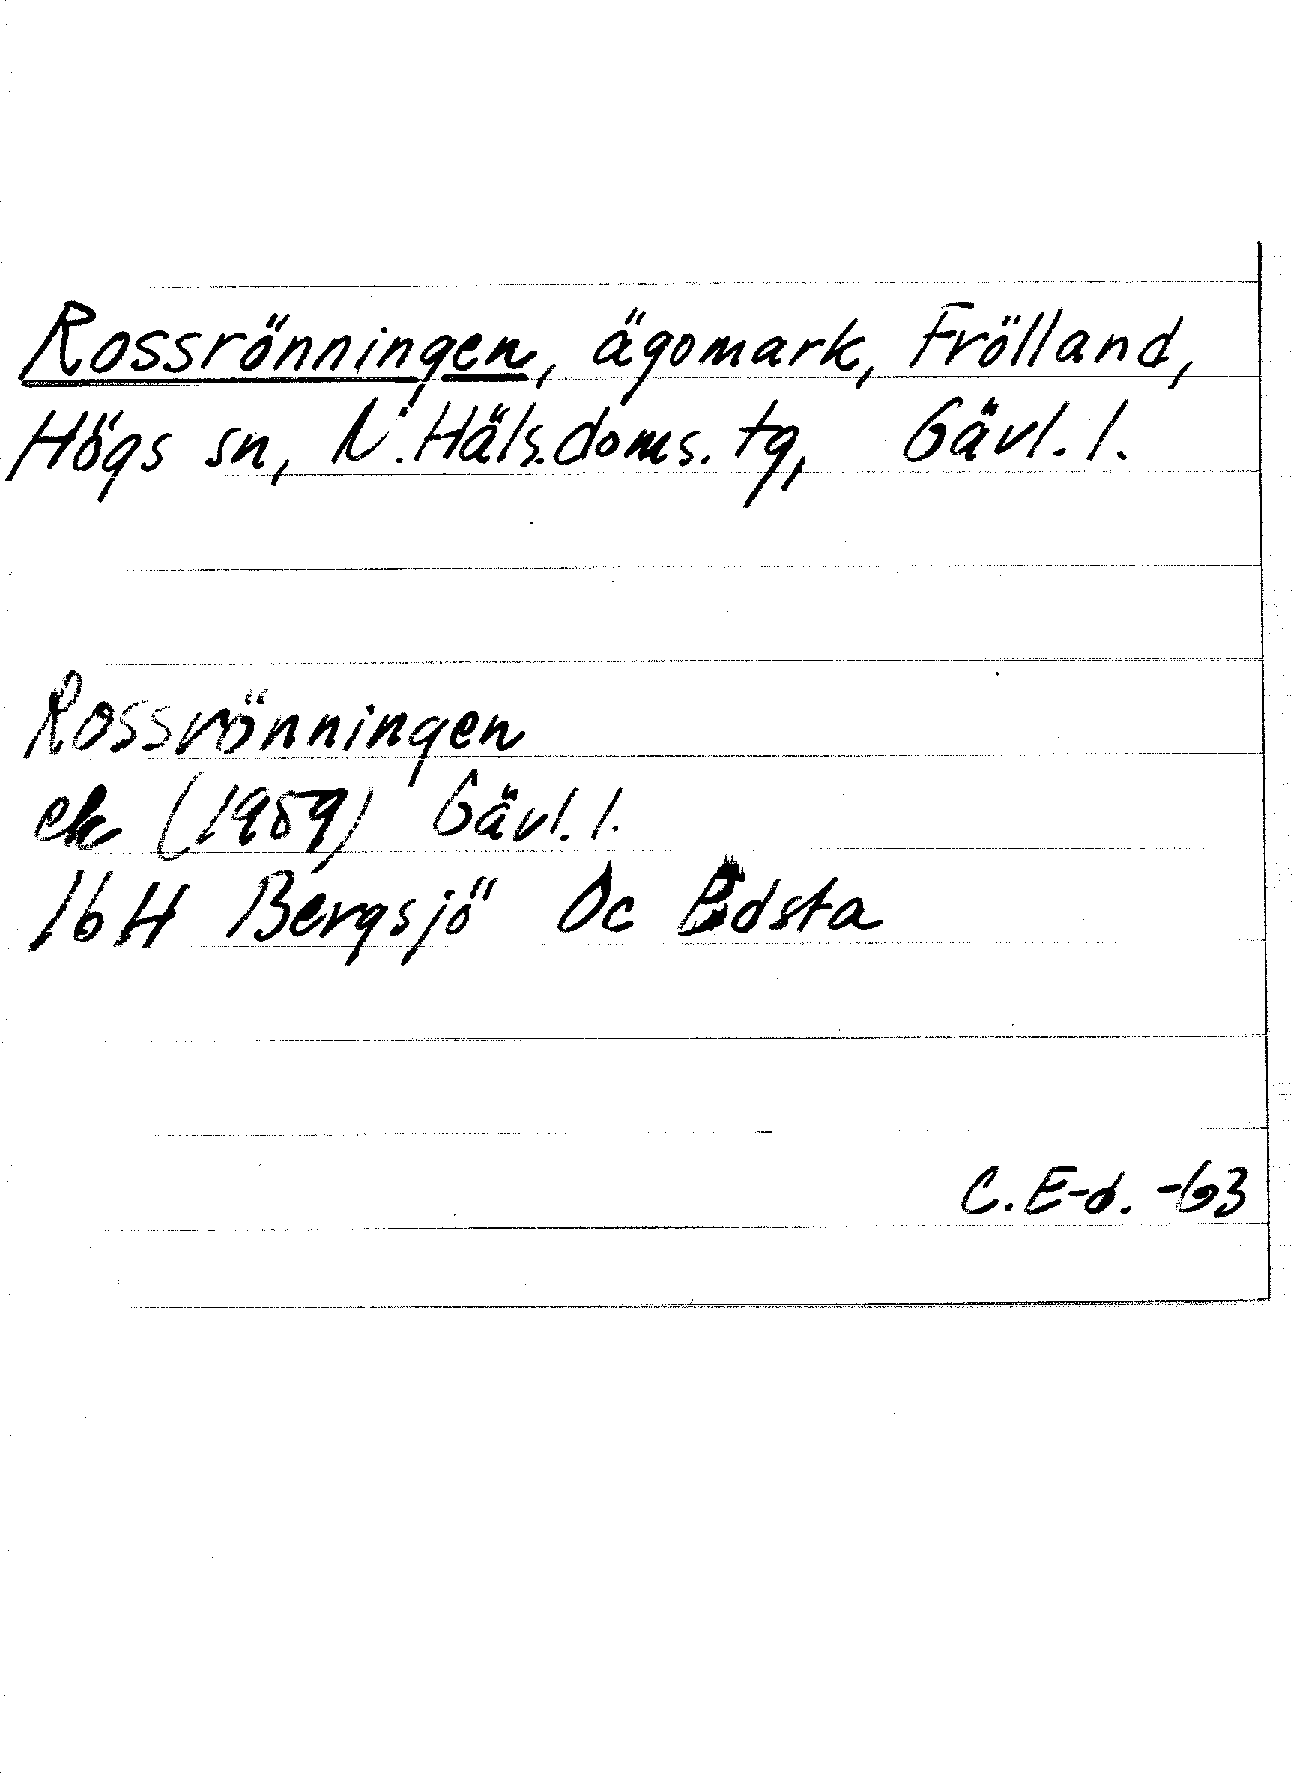 Rossrönningen, ägomark, Frölland,
Högs sn, N. Häls. doms. tg, Gävl. l.
Rossrönningen
ek (1959) Gävl. l.
16H Bergsjö 0c Edsta
C. E-d. -63